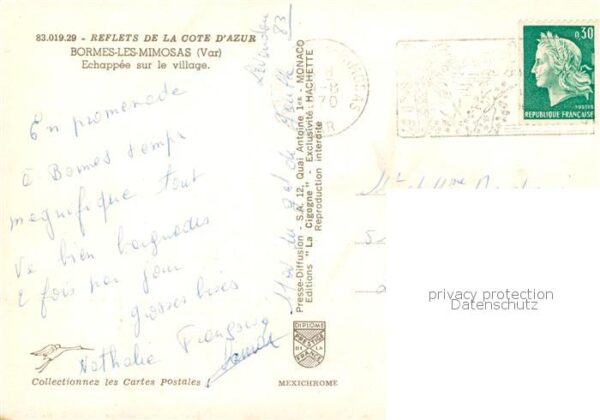 83.019.29 - REFLETS DE LA COTE D'AZUR
BORMES-LES-MIMOSAS (Var)
Echappée sur le village.
En promenade
à Bormes temps
magnifique tout
va bien baignades
2 fois par jour
grosses bises
Nathalie Françoise
Collectionnez les Cartes Postales
MEXICHROME
DIPLOME
PRESTIGE
DE LA
FRANCE
Presse-Diffusion . S.A. 12, Quai Antoine 1er MONACO
Editions "La Cigogne" - Exclusivité: HACHETTE
Reproduction interdite
83
0,30
POSTES
REPUBLIQUE FRANÇAISE
privacy protection
Datenschutz